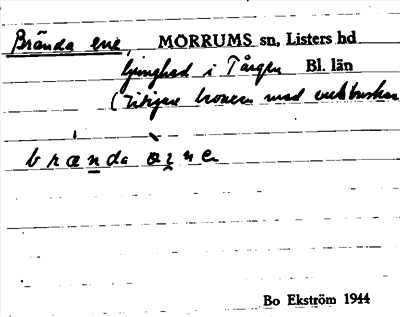 Brända ene, MÖRRUMS sn, Listers hd
ljunghed i Tången Bl. län
(risigare med enebuskar
brænda æ̀ꝛne
Bo Ekström 1944